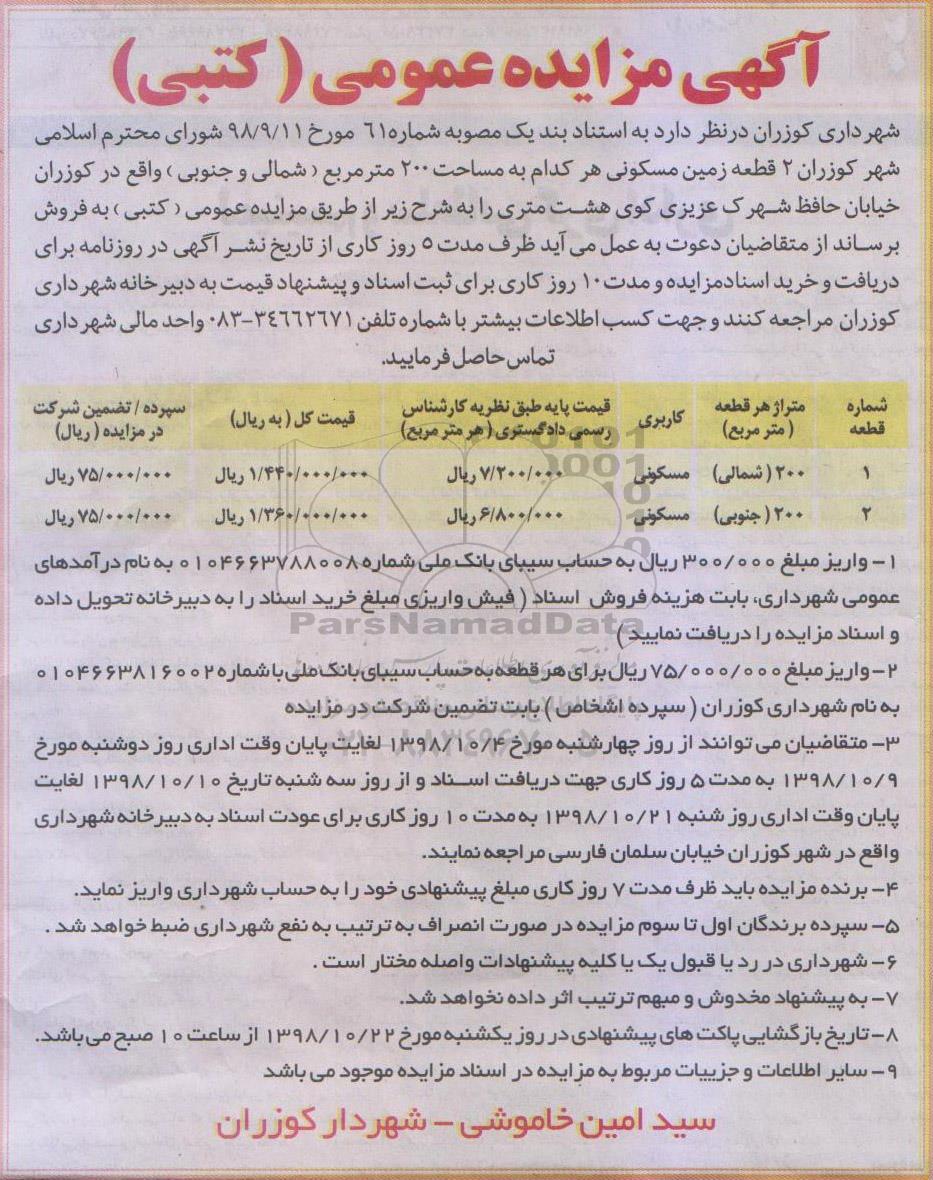 آگهی مزایده عمومی ( کتبی )
شهرداری کوزران درنظر دارد به استناد بند یک مصوبه شماره ٦١ مورخ ٩٨/٩/١١ شورای محترم اسلامی
شهر کوزران ٢ قطعه زمین مسکونی هر کدام به مساحت ٢٠٠ مترمربع ( شمالی و جنوبی ) واقع در کوزران
خیابان حافظ شهرک عزیزی کوی هشت متری را به شرح زیر از طریق مزایده عمومی ( کتبی ) به فروش
برساند از متقاضیان دعوت به عمل می آید ظرف مدت ٥ روز کاری از تاریخ نشر آگهی در روزنامه برای
دریافت و خرید اسنادمزایده و مدت ١٠ روز کاری برای ثبت اسناد و پیشنهاد قیمت به دبیرخانه شهرداری
کوزران مراجعه کنند و جهت کسب اطلاعات بیشتر با شماره تلفن ٣٤٦٦٢٦٧١-٠٨٣ واحد مالی شهرداری
تماس حاصل فرمایید.
شماره قطعه | متراژ هر قطعه ( متر مربع) | کاربری | قیمت پایه طبق نظریه کارشناس رسمی دادگستری ( هر متر مربع) | قیمت کل ( به ریال) | سپرده / تضمین شرکت در مزایده ( ریال)
۱ | ۲۰۰ ( شمالی) | مسکونی | ۷/۲۰۰/۰۰۰ ریال | ۱/۴۴۰/۰۰۰/۰۰۰ ریال | ۷۵/۰۰۰/۰۰۰ ریال
۲ | ۲۰۰ ( جنوبی) | مسکونی | ۶/۸۰۰/۰۰۰ ریال | ۱/۳۶۰/۰۰۰/۰۰۰ ریال | ۷۵/۰۰۰/۰۰۰ ریال
۱- واریز مبلغ ۳۰۰/۰۰۰ ریال به حساب سیبای بانک ملی شماره ۰۱۰۴۶۶۳۷۸۸۰۰۸ به نام درآمدهای
عمومی شهرداری، بابت هزینه فروش اسناد ( فیش واریزی مبلغ خرید اسناد را به دبیرخانه تحویل داده
و اسناد مزایده را دریافت نمایید )
۲- واریز مبلغ ۷۵/۰۰۰/۰۰۰ ریال برای هر قطعه به حساب سیبای بانک ملی با شماره ۰۱۰۴۶۶۳۸۱۶۰۰۲
به نام شهرداری کوزران ( سپرده اشخاص ) بابت تضمین شرکت در مزایده
۳- متقاضیان می توانند از روز چهارشنبه مورخ ۱۳۹۸/۱۰/۴ لغایت پایان وقت اداری روز دوشنبه مورخ
۱۳۹۸/۱۰/۹ به مدت ۵ روز کاری جهت دریافت اسناد و از روز سه شنبه تاریخ ۱۳۹۸/۱۰/۱۰ لغایت
پایان وقت اداری روز شنبه ۱۳۹۸/۱۰/۲۱ به مدت ۱۰ روز کاری برای عودت اسناد به دبیرخانه شهرداری
واقع در شهر کوزران خیابان سلمان فارسی مراجعه نمایند.
۴- برنده مزایده باید ظرف مدت ۷ روز کاری مبلغ پیشنهادی خود را به حساب شهرداری واریز نماید.
۵- سپرده برندگان اول تا سوم مزایده در صورت انصراف به ترتیب به نفع شهرداری ضبط خواهد شد .
۶- شهرداری در رد یا قبول یک یا کلیه پیشنهادات واصله مختار است .
۷- به پیشنهاد مخدوش و مبهم ترتیب اثر داده نخواهد شد.
۸- تاریخ بازگشایی پاکت های پیشنهادی در روز یکشنبه مورخ ۱۳۹۸/۱۰/۲۲ از ساعت ۱۰ صبح می باشد.
۹- سایر اطلاعات و جزییات مربوط به مزایده در اسناد مزایده موجود می باشد
سید امین خاموشی - شهردار کوزران
ParsNamadData